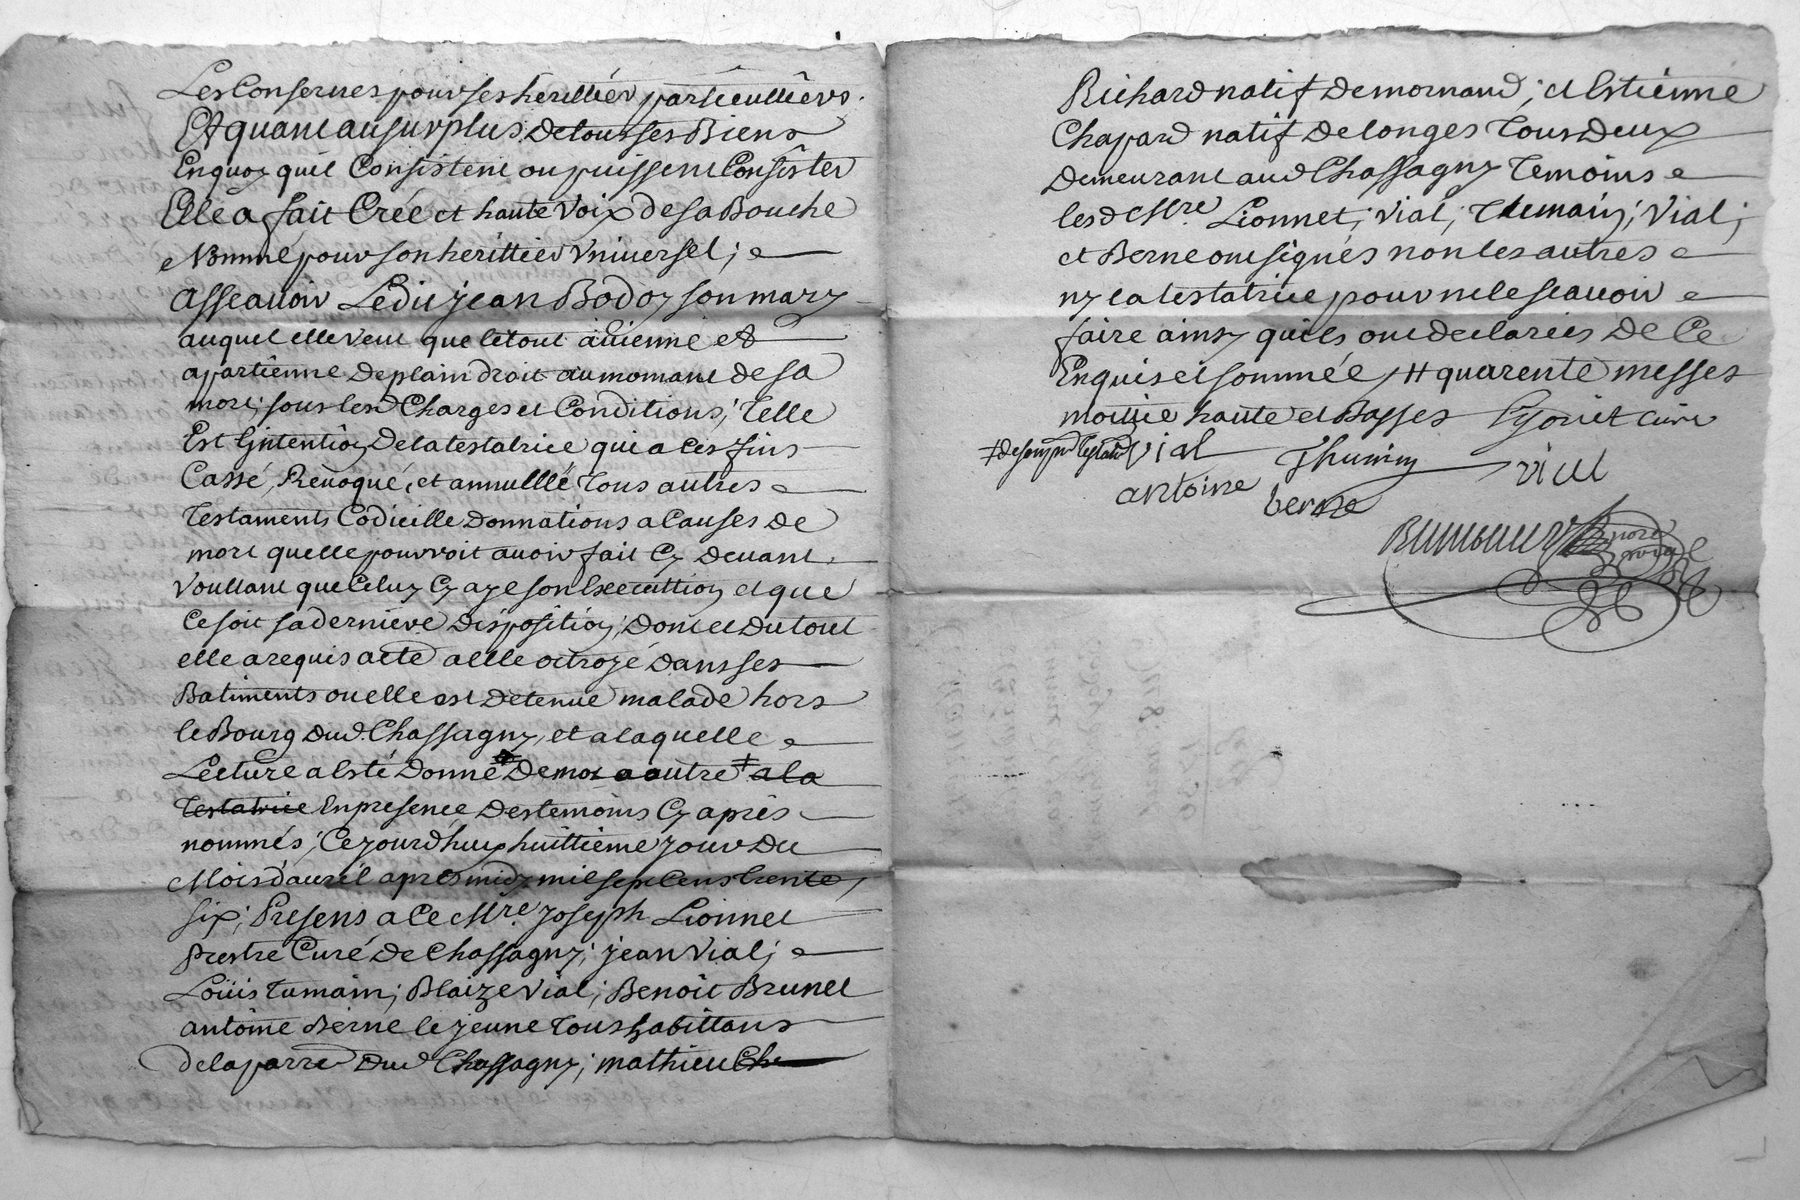 Les Conserues pour ses herittiérs particulliérs.
Et quant au surplus de tous ses Biens
En quoy quil Consistent ou puissent Consister
Elle a fait Créé et haute Voix de sa Bouche
Nommé pour son herittier Vniuersel;
Asseauoir Ledit jean Bodoy son mary
auquel elle Veut que le tout auienne et
apartienne de plain droit au momant de sa
mort; sous lesd Charges et Conditions; Telle
Est Lintention de la testatrice qui a Ces fins
Cassé, Reuoqué, et annullé tous autres
Testaments Codicille Donnations a Causes de
mort quelle pourroit auoir fait Cy deuant.
Voullant que Celuy Cy aye son Executtion et que
Ce soit sa derniere disposition; Dont et du tout
elle a requis acte a Elle octroyé dans ses
Batiments ou elle est detenuë malade hors
le Bourg dud. Chassagny, et a laquelle
Lecture a Esté donné de mot a autre ‡ a la
Testatrice En presence des temoins Cy aprés
nommés; Cejourdhuy huittiéme jour du
Mois dauril aprés midy mil sept Cens trente
six; Presens a Ce Mre. Joseph Lionnet
Prestre Curé de Chassagny; jean Vial;
Loüis tumain; Blaize Vial; Benoit Brunet
antoine Berne le jeune tous habittans
de la parre dud Chassagny; mathieu Ch
Richard natif de mornand; et Estienne
Chapard natif de longes tous deux
demeurant aud Chassagny Temoins
lesd Mre. Lionnet; Vial; Tumain; Vial;
et Berne ont signés non les autres
ny la testatrice pour ne le scauoir
faire ainsy quils ont declarées de Ce
Enquis et sommée, # quarente messes
moitié haute et Basses Lyonnet Curé
Vial Thumin Vial
antoine berne